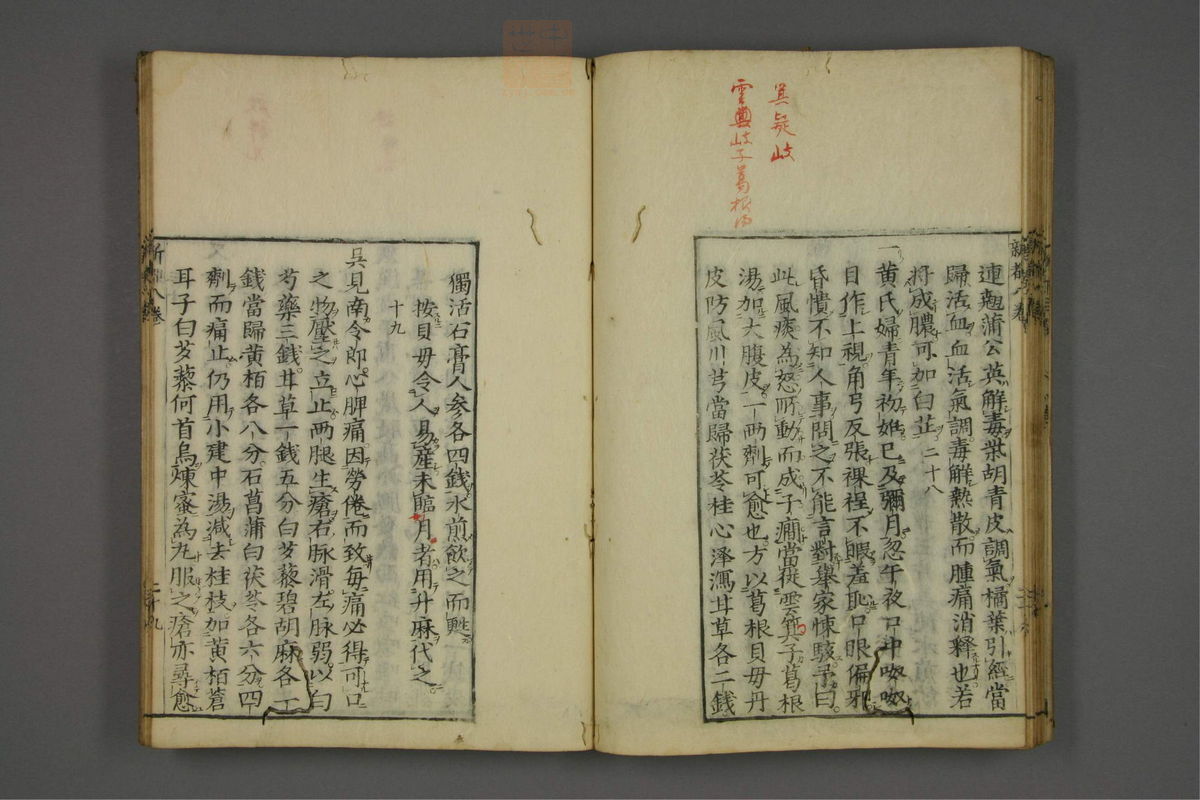 箕疑岐
雲輿岐子葛根湯
連翹蒲公英解毒柴胡青皮調氣橘葉引經當
歸活血血活氣調毒解熱散而腫痛消釋也若
將成膿可加白芷二十八
一黃氏婦青年初娩已及彌月忽午夜口中呶呶
目作上視角弓反張裸裎不暇羞恥口眼偏邪
昏憒不知人事問之不能言對舉家悚駭予曰
此風痰為怒所動而成子癇當從雲箕子葛根
湯加大腹皮一兩劑可愈也方以葛根貝母丹
皮防風川芎當歸茯苓桂心澤瀉甘草各二錢
獨活石膏人參各四錢水煎飲之而甦
按貝母令人易產未臨月者用升麻代之
十九
吳見南令郎心脾痛因勞倦而致每痛必得可口
之物壓之立止兩腿生瘡右脉滑左脉弱以白
芍藥三錢甘草一錢五分白芰藜碧胡麻各一
錢當歸黃栢各八分石菖蒲白茯苓各六分四
劑而痛止仍用小建中湯減去桂枝加黃栢蒼
耳子白芰藜何首烏煉蜜為丸服之瘡亦尋愈
新都八卷
二十九